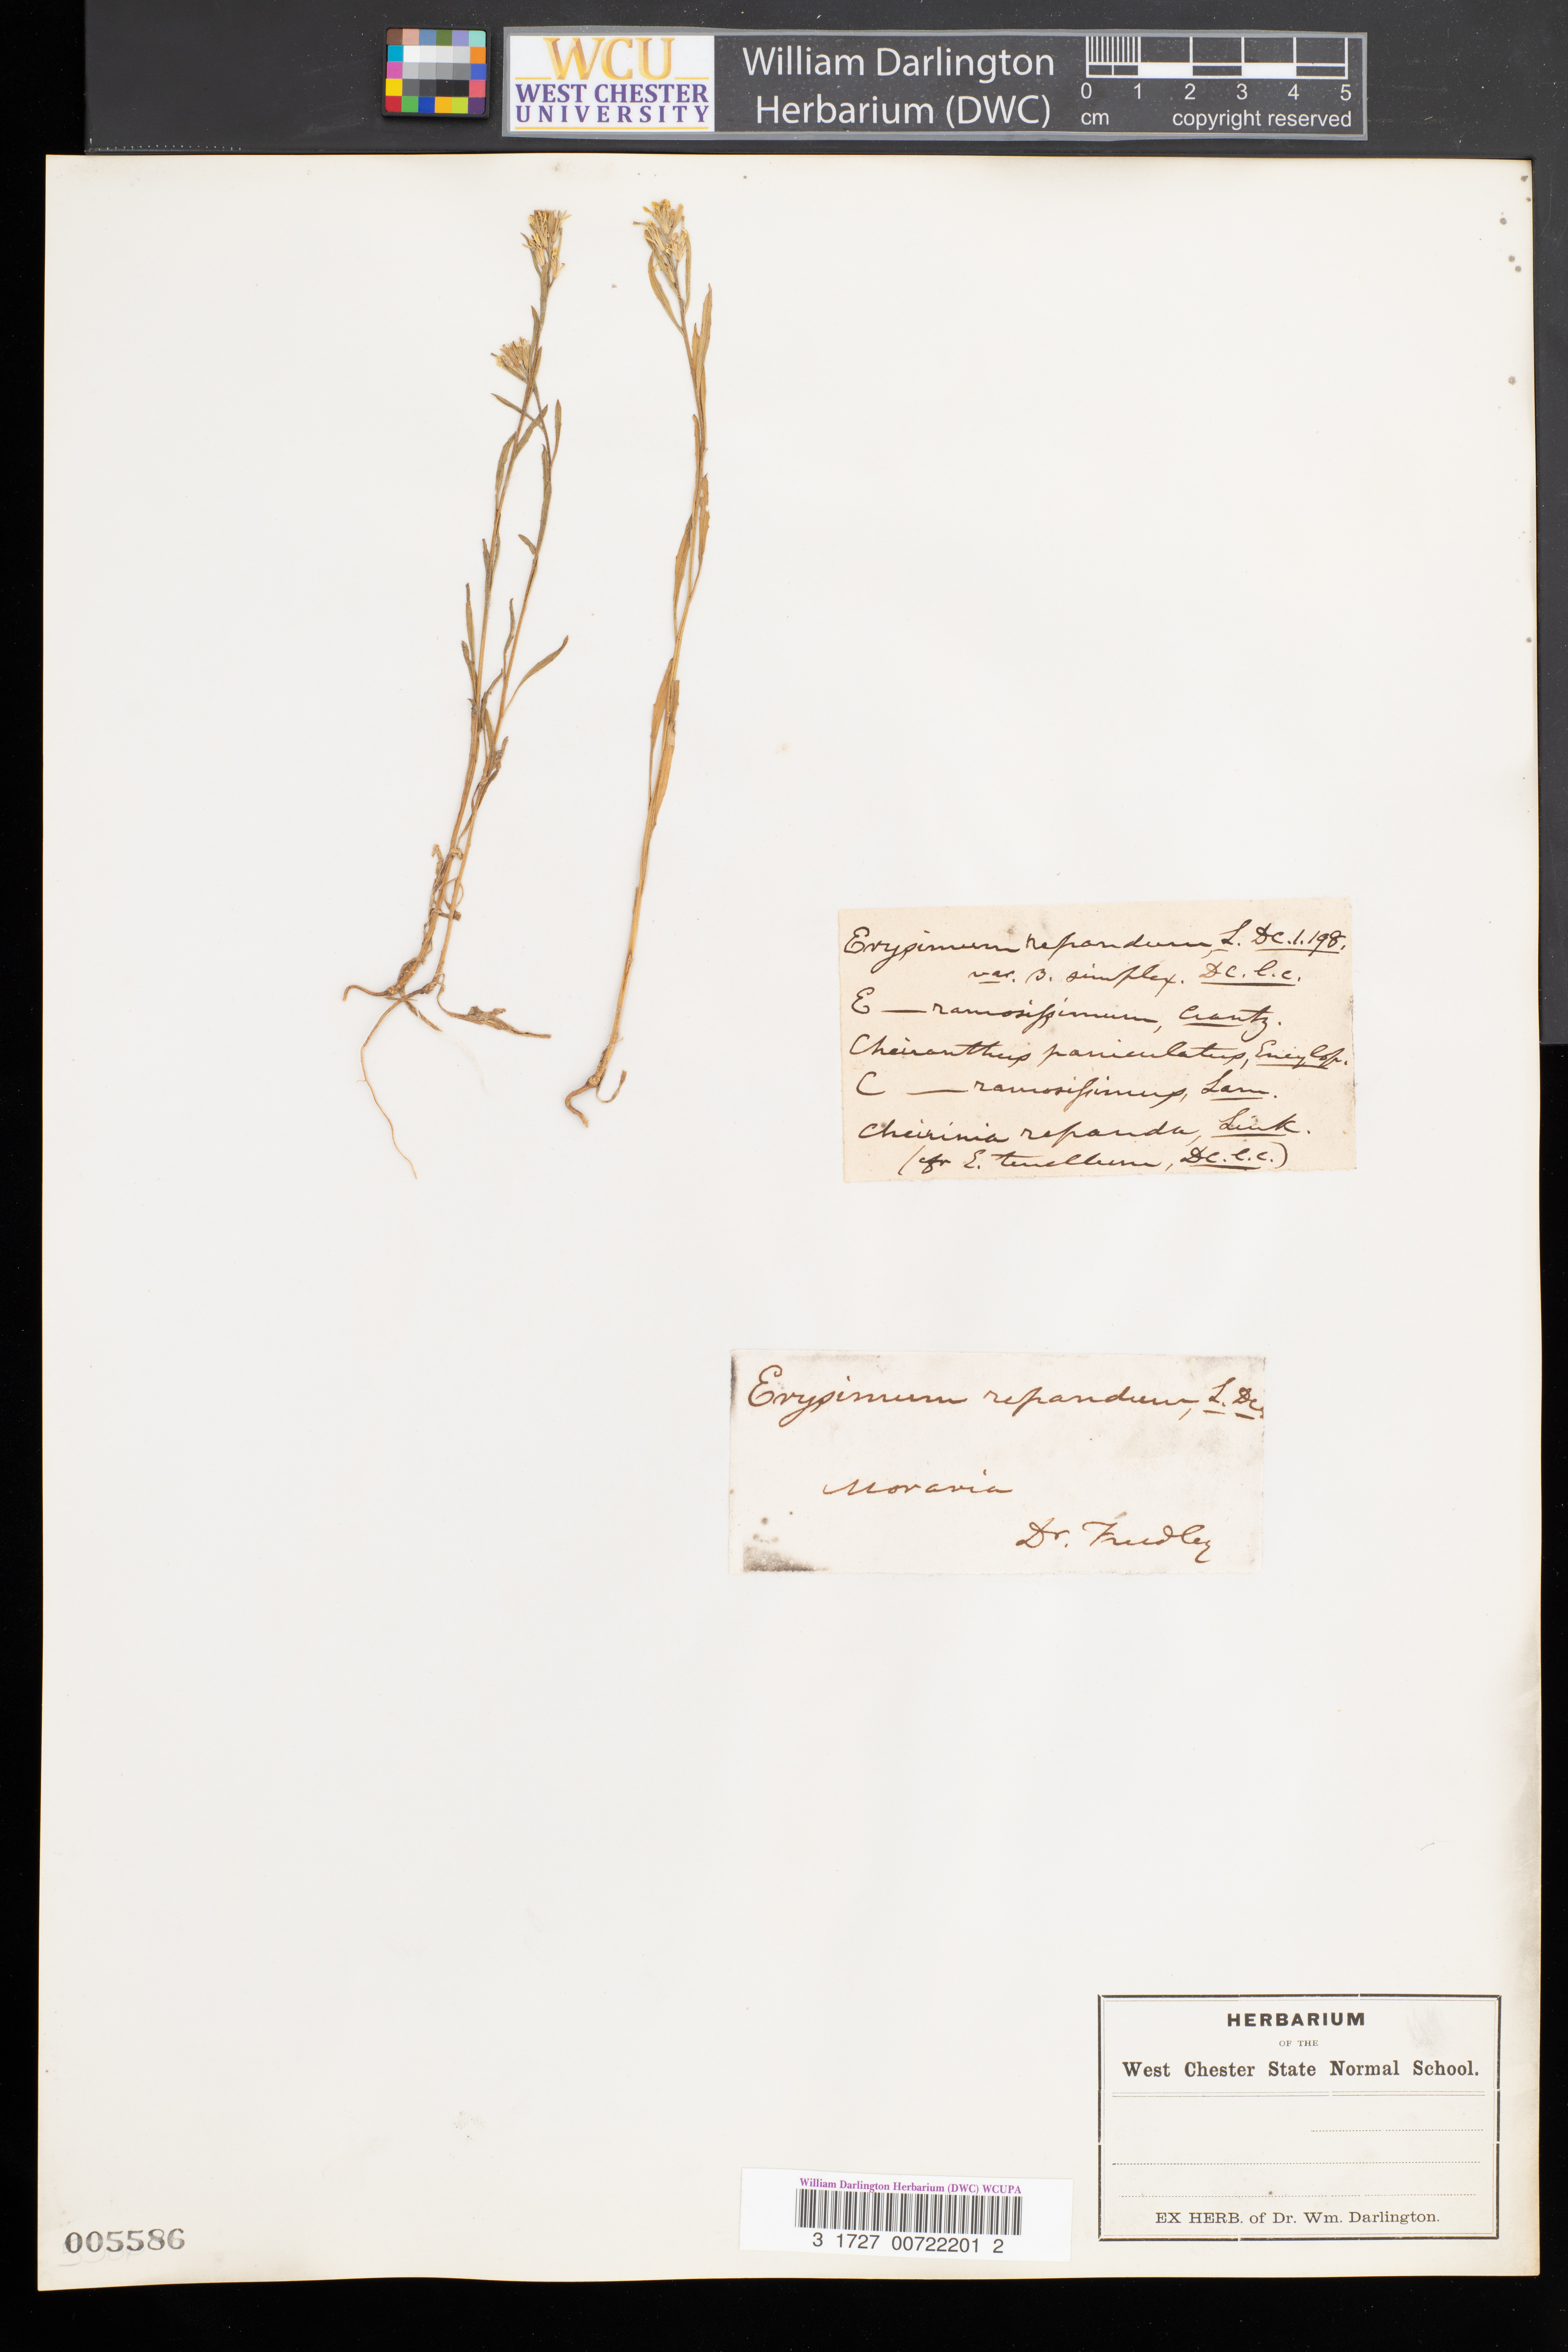 WCU
WEST CHESTER
UNIVERSITY
William Darlington
Herbarium (DWC)
0 1 2 3 4 5
cm copyright reserved
Erysimum repandum, L. DC. 1. 198.
var. β. simplex. DC. l. c.
E — ramosissimum, Crantz.
Cheiranthus paniculatus, Encylop.
C — ramosissimus, Lam.
Cheirinia repanda, Link.
(cfr E. tenellum, DC. l. c.)
Erysimum repandum, L. DC.
Moravia
Dr.
HERBARIUM
OF THE
West Chester State Normal School.
EX HERB. of Dr. Wm. Darlington.
William Darlington Herbarium (DWC) WCUPA
3 1727 00722201 2
005586